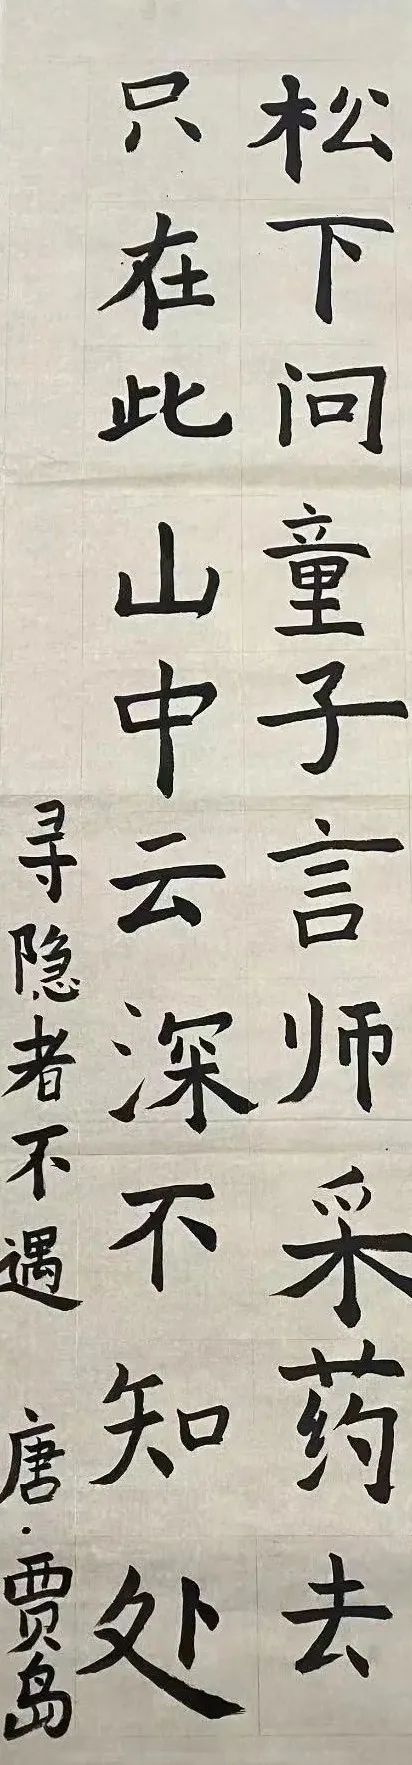 松下问童子言师采药去
只在此山中云深不知处
寻隐者不遇 唐·贾岛